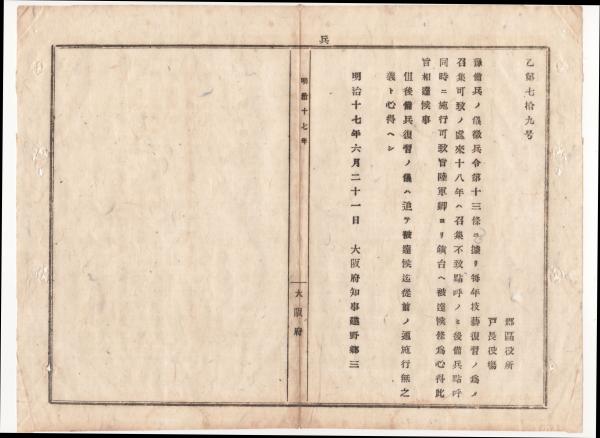 兵
乙第七拾九号
郡區役所
戸長役塲
豫備兵ノ儀徴兵令第十三條ニ據リ毎年技藝復習ノ爲メ
召集可致ノ處來十八年ハ召集不致點呼ノミ後備兵點呼
同時ニ施行可致旨陸軍卿ヨリ鎭台ヘ被達候條爲心得此
旨相達候事
但後備兵復習ノ儀ハ追テ被達候迄從前ノ通施行無之
義ト心得ヘシ
明治十七年六月二十一日 大阪府知事建野郷三
明治十七年
大阪府